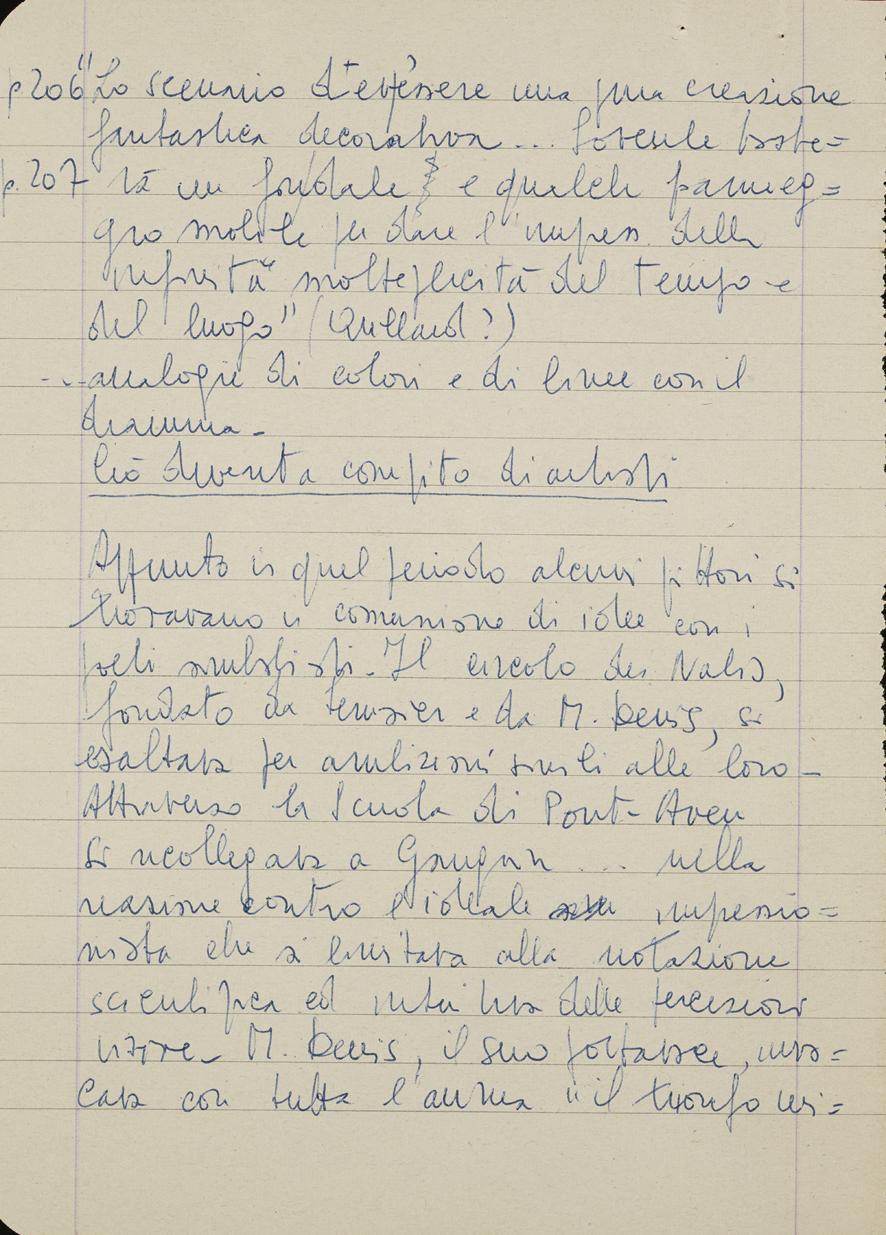 p 206 "Lo scenario dev'essere una pura creazione
fantastica decorativa ... Sovente baste=
p. 207 rà un fondale e qualche panneg=
gio mobile per dare l'impress. della
infinita molteplicità del tempo e
del luogo" (Quillard?)
... analogie di colori e di linee con il
dramma -
Ciò diventa compito di artisti
Appunto in quel periodo alcuni pittori si
trovavano in comunione di idee con i
poeti simbolisti. Il circolo dei Nabis,
fondato da Serusier e da M. Denis, si
esaltava per ambizioni simili alle loro -
Attraverso la Scuola di Pont-Aven
si ricollegava a Gauguin ... nella
reazione contro l'ideale impressio=
nista che si limitava alla notazione
scientifica ed intuitiva delle percezioni
visive - M. Denis, il suo portavoce, invo=
cava con tutta l'anima "il trionfo uni=